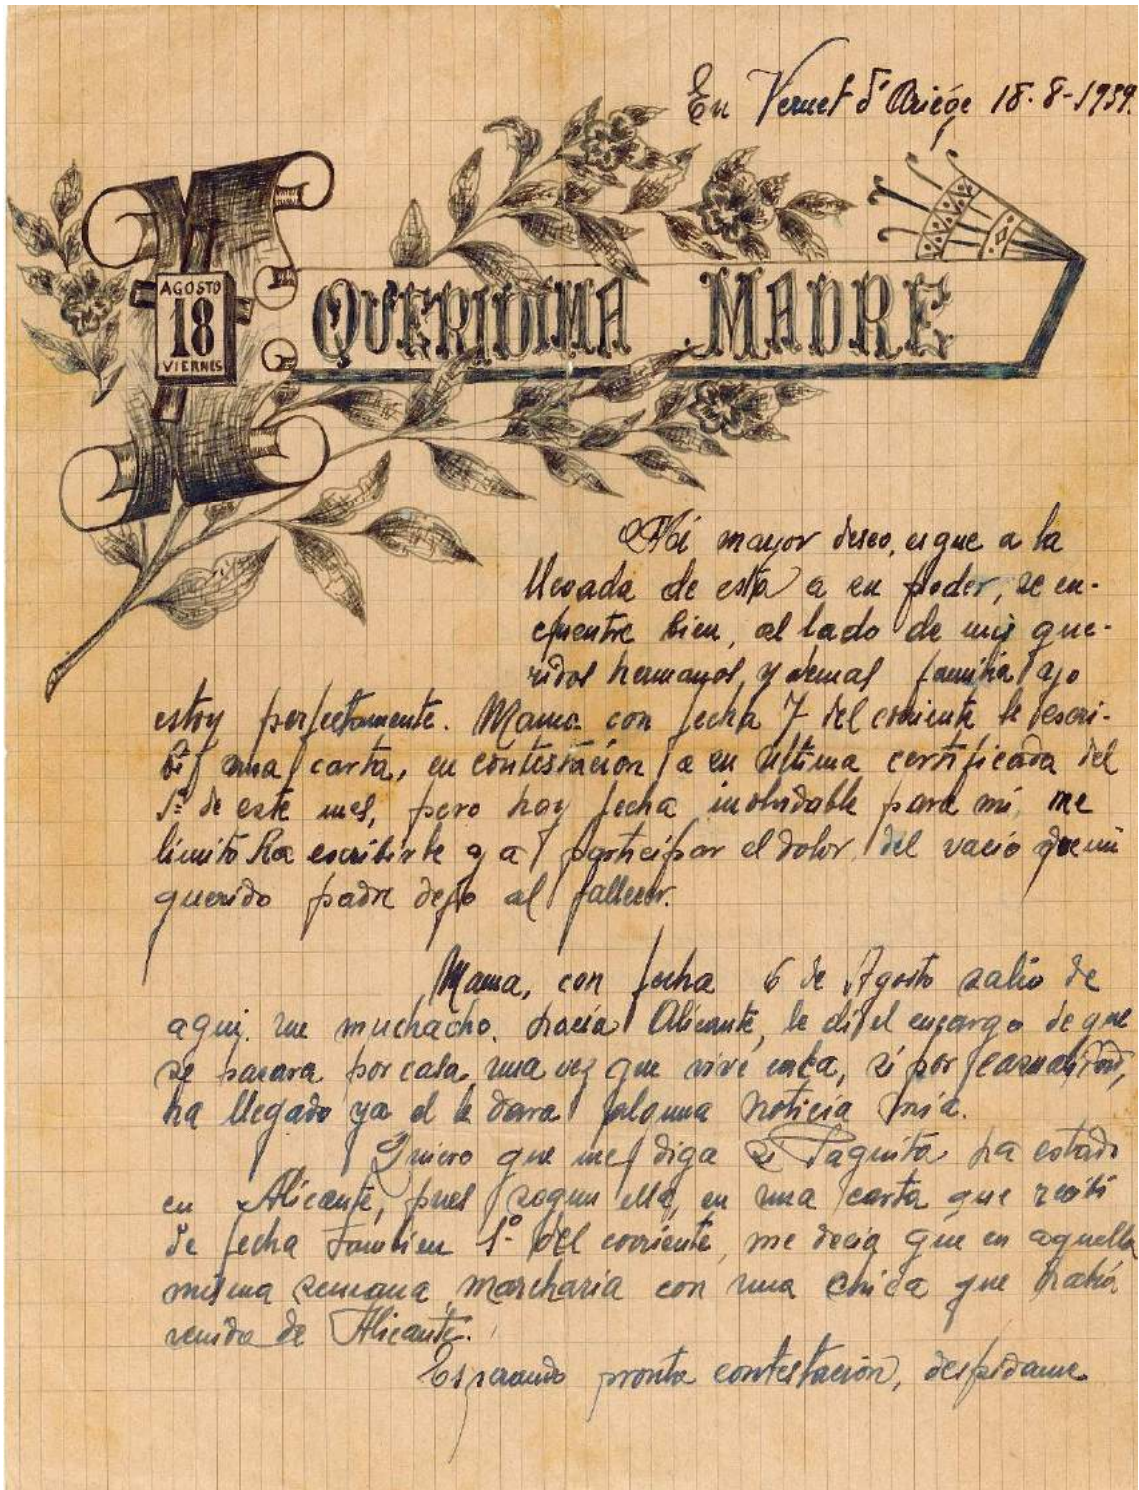 En Vernet d'Ariége 18-8-1939.
AGOSTO
18
VIERNES
QUERIDIMA MADRE
Mi mayor deseo, es que a la
llegada de esta a su poder, se en-
cuentre bien, al lado de mis que-
ridos hermanos, y demas familia yo
estoy perfectamente. Mama con fecha 7 del corriente le escri-
bi una carta, en contestación a su última certificada del
1º de este mes, pero hoy fecha inolvidable para mi, me
limito ha escribirle y a participar el dolor, del vacio que mi
querido padre dejo al fallecer.
Mama, con fecha 6 de Agosto salio de
aqui, un muchacho, hacia Alicante, le di el encargo de que
se pasara por casa, una vez que vive cerca, si por casualidad,
ha llegado ya el le dara alguna noticia mia.
Quiero que me diga si Paquita ha estado
en Alicante, pues segun ella, en una carta que recibi
de fecha tambien 1º del corriente, me decia que en aquella
misma semana, marcharia con una chica que habia
venido de Alicante.
Esperando pronta contestación, despidame